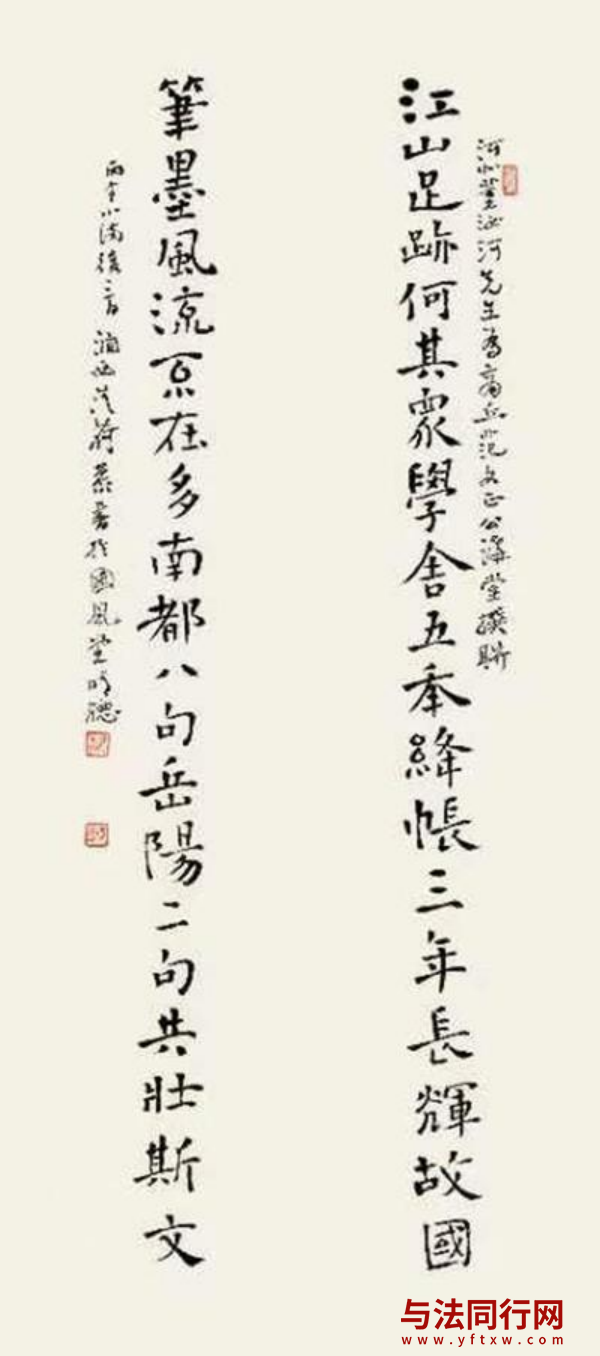 河北董汝河先生為商丘范文正公講堂撰聯
江山足跡何其眾學舍五秊絳帳三年長輝故國
筆墨風流不在多南都八句岳陽二句共壯斯文
丙午小滿後二日 書於國風堂
与法同行网
www.yftxw.com